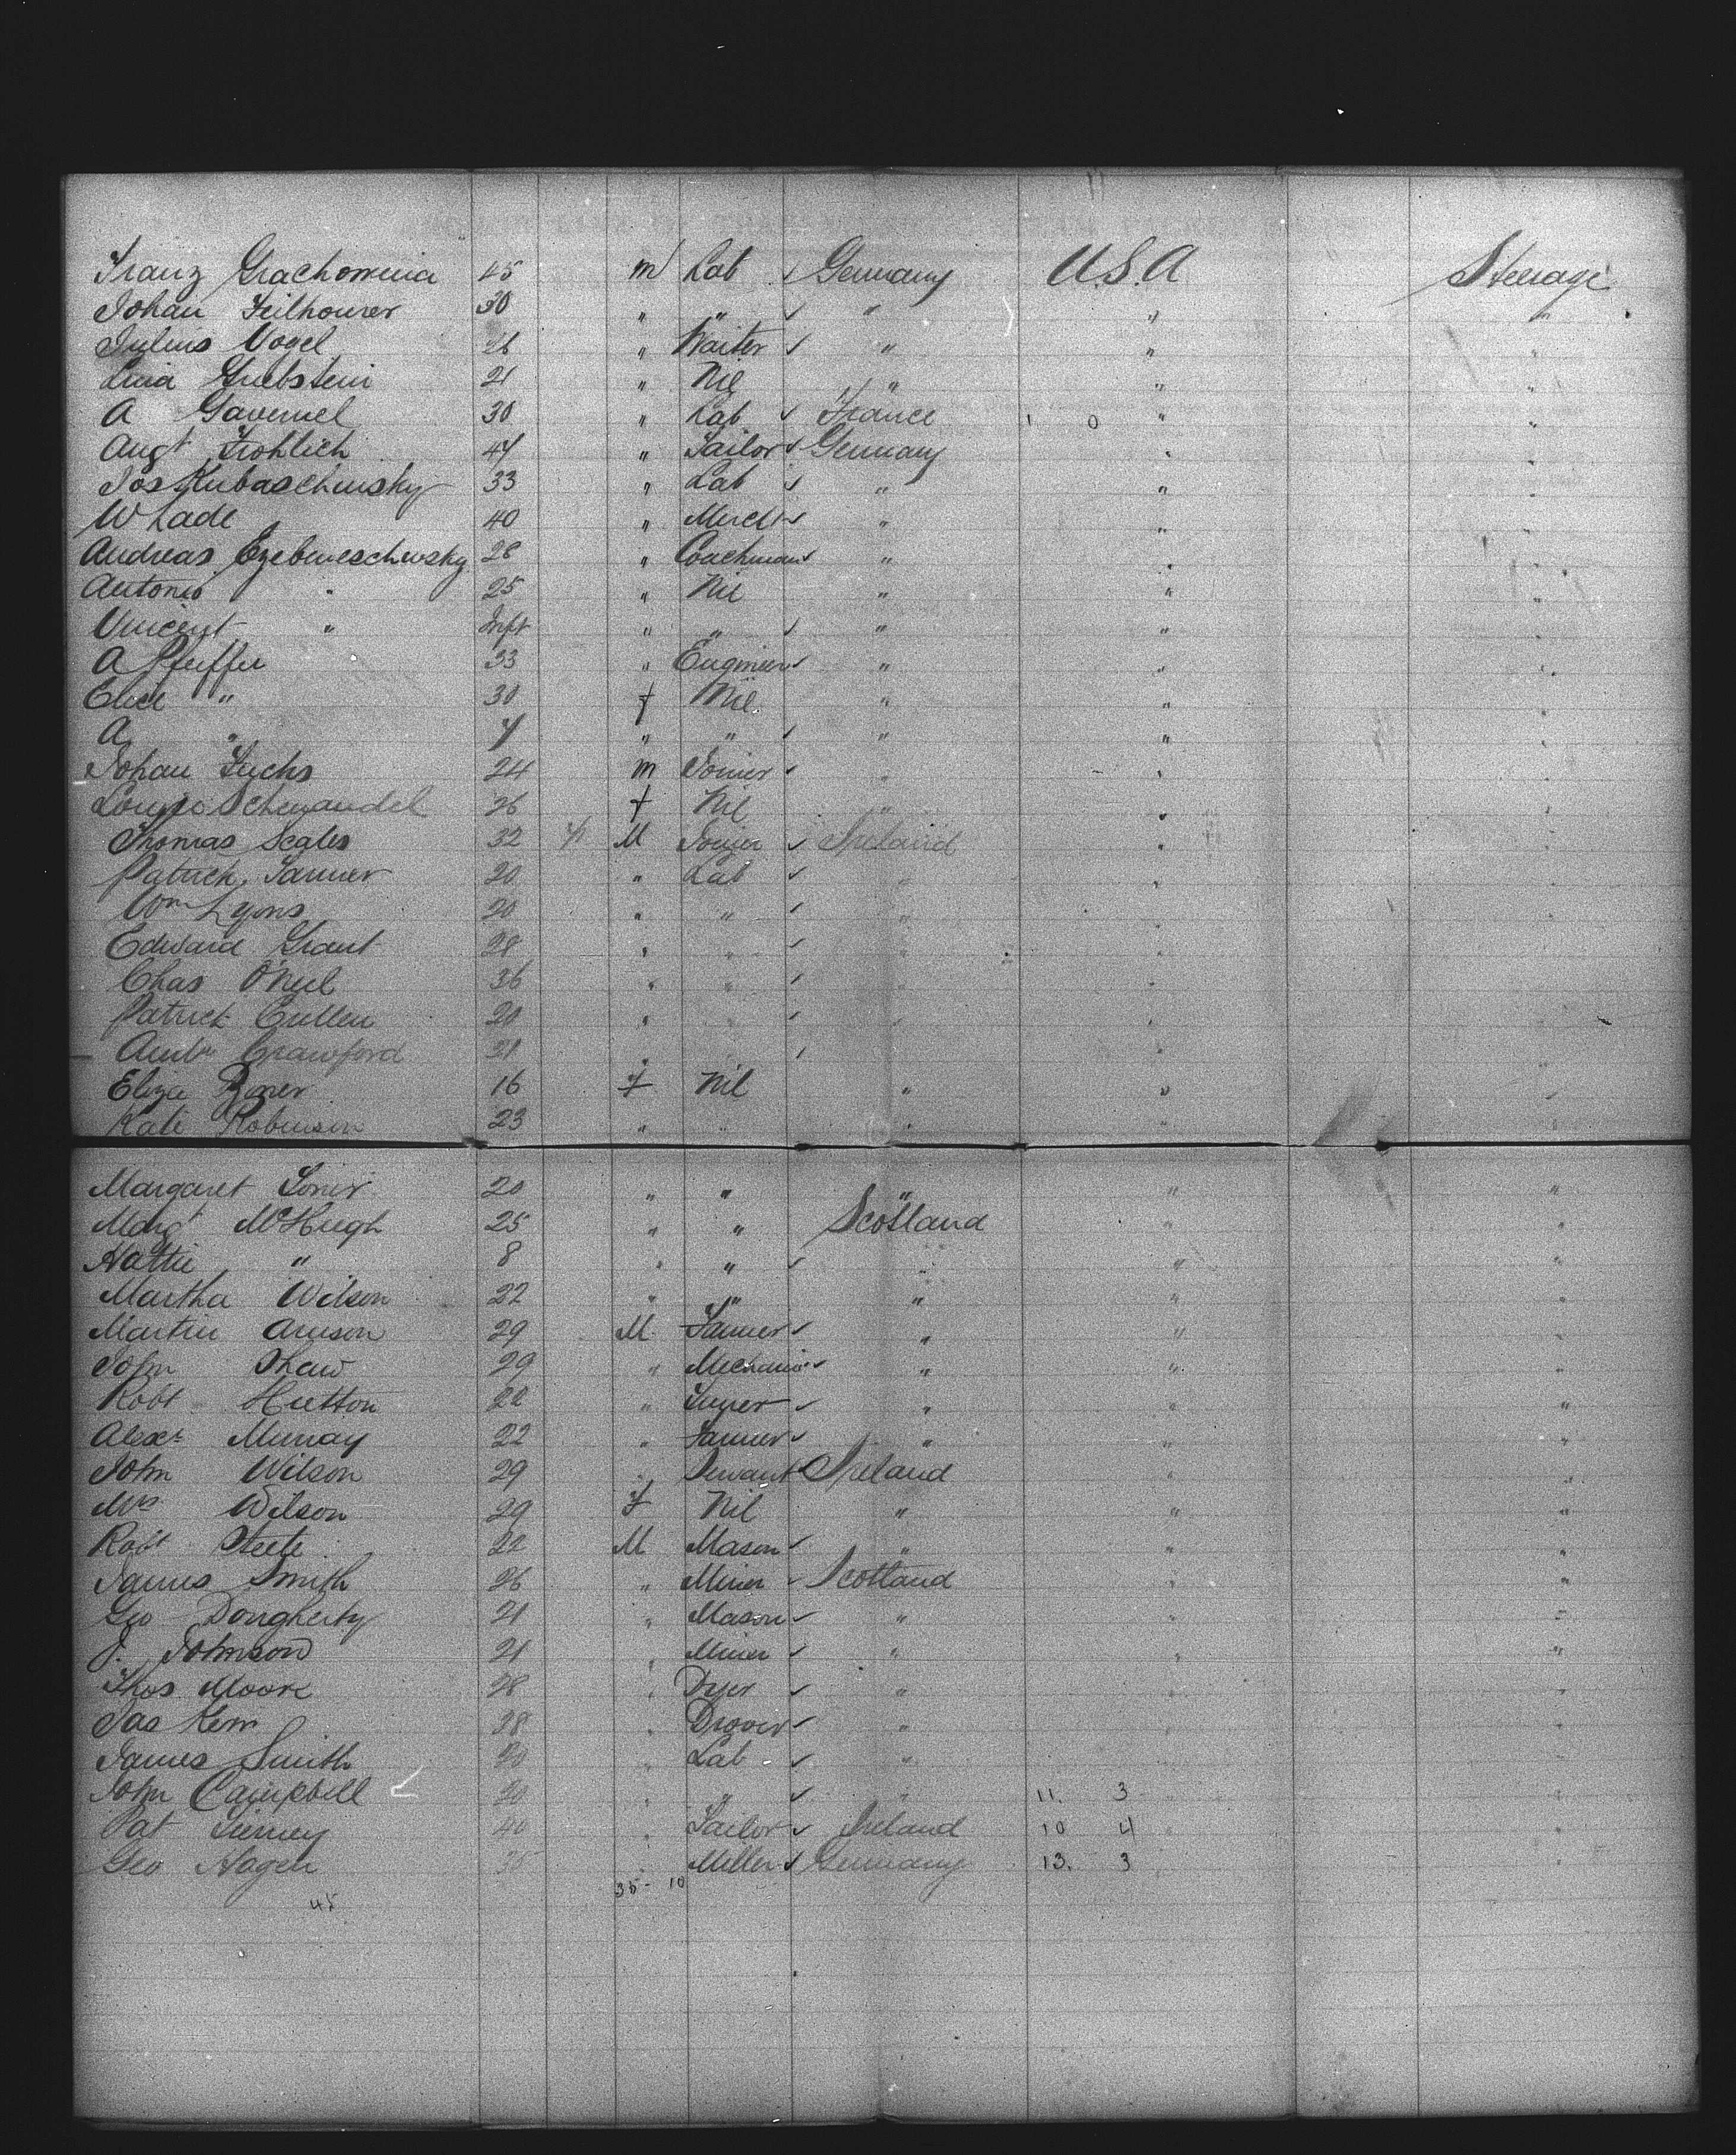 Franz Grachomina 45 m Lab ✓ Germany U.S.A Steerage
Johan Feilhourer 30 " " ✓ " " "
Julius Vogel 26 " Waiter ✓ " " "
Lina Grubstein 21 " Nil " " "
A Gavernel 30 " Lab ✓ France " "
Augt Frohlich 47 " Tailor ✓ Germany " "
Jos Kubaschinsky 33 " Lab ✓ " " "
W Lade 40 " Mercht ✓ " " "
Andreas 28 " Coachman ✓ " " "
Antonio " 25 " Nil " " "
Vincent " Inft " " ✓ " " "
A Pfeiffer 33 " Engineer ✓ " " "
Elise " 30 f Nil " " "
A " 7 " " ✓ " " "
Johan Fuchs 24 m Joiner ✓ " " "
Louise Schewandel 26 f Nil " " "
Thomas Scales 32 M Joiner ✓ Ireland " "
Patrick Farmer 20 " Lab ✓ " " "
Wm Lyons 20 " " ✓ " " "
Edward Grant 28 " " ✓ " " "
Chas O'Neil 36 " " ✓ " " "
Patrick Cullen 20 " " ✓ " " "
Crawford 21 " " ✓ " " "
Eliza 16 f Nil " " "
Kate Robinson 23 " " " " "
Margaret 20 " " " " "
Margt McHugh 25 " " Scotland " "
Hattie " 8 " " ✓ " " "
Martha Wilson 22 " " " " "
Martin Amson 29 M Farmer ✓ " " "
John Shaw 29 " Mechanic ✓ " " "
Robt Hutton 22 " ✓ " " "
Alexr Murray 22 " Farmer ✓ " " "
John Wilson 29 " Servant ✓ Ireland " "
Mrs Wilson 29 F Nil " " "
Robt Steele 22 M Mason ✓ " " "
James Smith 26 " Miner ✓ Scotland " "
Geo Dougherty 21 " Mason ✓ " " "
J. Johnson 21 " Miner ✓ " " "
Thos Moore 28 " Dyer ✓ " " "
Jas Kerr 28 " Drover ✓ " " "
James Smith 20 " Lab ✓ " " "
John Campbell 20 " " ✓ " 11. 3 " "
Pat Tierney 40 " Tailor ✓ Ireland 10 4 " "
Geo Hagen 35 " Miller ✓ Germany 13. 3 " "
45 35 - 10